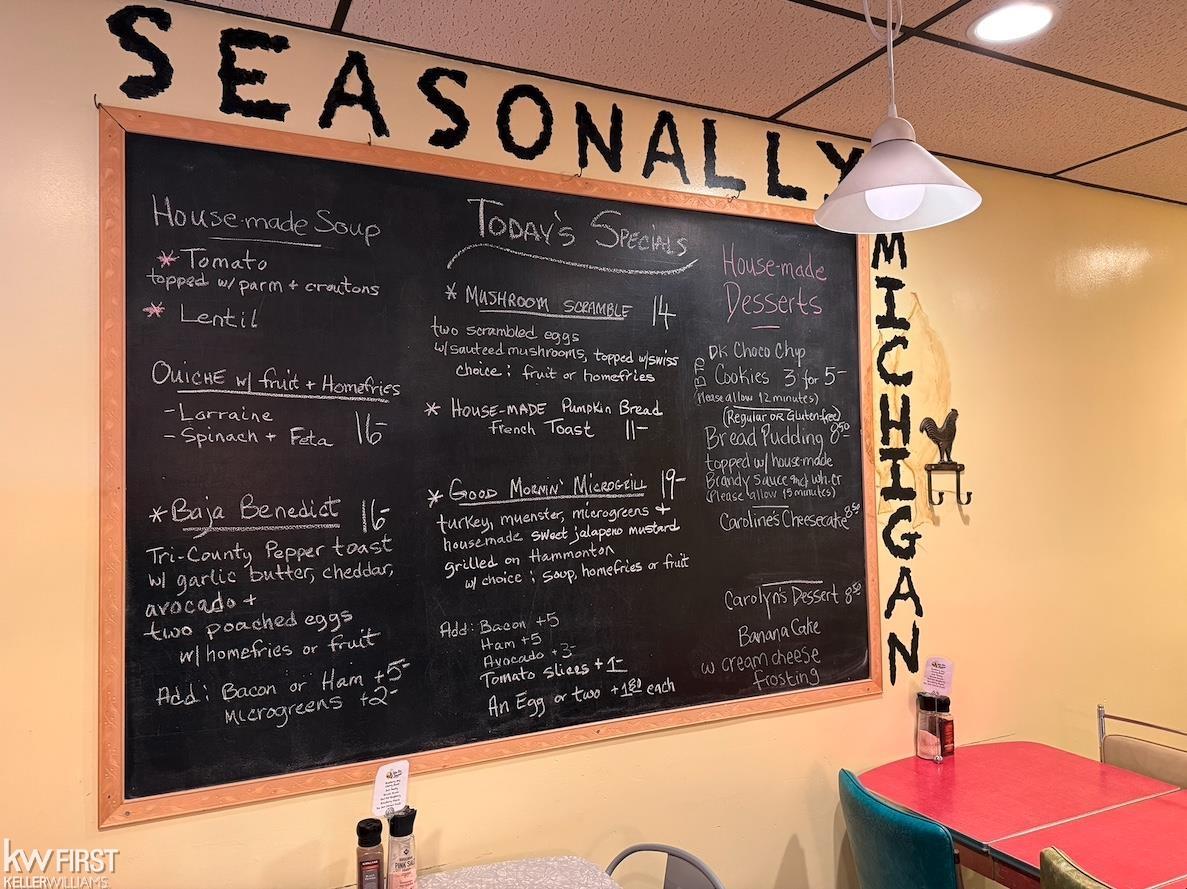 SEASONALLY
MICHIGAN
House-made Soup
* Tomato
topped w/ parm + croutons
* Lentil
QUICHE w/ fruit + Homefries
- Lorraine
- Spinach + Feta 16-
* Baja Benedict 16-
Tri-County Pepper toast
w/ garlic butter, cheddar,
avocado +
two poached eggs
w/ homefries or fruit
Add: Bacon or Ham +5-
Microgreens +2-
TODAY'S SPECIALS
* MUSHROOM SCRAMBLE 14
two scrambled eggs
w/sauteed mushrooms, topped w/swiss
choice: fruit or homefries
* HOUSE-MADE Pumpkin Bread
French Toast 11-
* GOOD MORNIN' MICROGRILL 19-
turkey, muenster, microgreens +
housemade sweet jalapeno mustard
grilled on Hammonton
w/ choice: soup, homefries or fruit
Add: Bacon +5
Ham +5
Avocado +3-
Tomato slices +1-
An Egg or two +1.80 each
House-made
Desserts
DK Choco Chip
BTO Cookies 3 for 5-
(Please allow 12 minutes)
(Regular or Gluten-free)
Bread Pudding 8.50
topped w/ house-made
Brandy Sauce and wh. cr
(Please allow 15 minutes)
Caroline's Cheesecake 8.50
Carolyn's Dessert 8.50
Banana Cake
w cream cheese
frosting
PINK SALT
kw FIRST
KELLERWILLIAMS